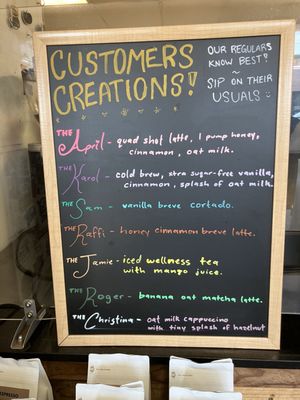 CUSTOMERS
CREATIONS!
OUR REGULARS
KNOW BEST!
~
SIP ON THEIR
USUALS :)
THE April - quad shot latte, 1 pump honey,
cinnamon, oat milk.
THE Karol - cold brew, xtra sugar-free vanilla,
cinnamon, splash of oat milk.
THE Sam - vanilla breve cortado.
THE Raffi - honey cinnamon breve latte.
THE Jamie - iced wellness tea
with mango juice.
THE Roger - banana oat matcha latte.
THE Christina - oat milk cappuccino
with tiny splash of hazelnut
ESPRESSO